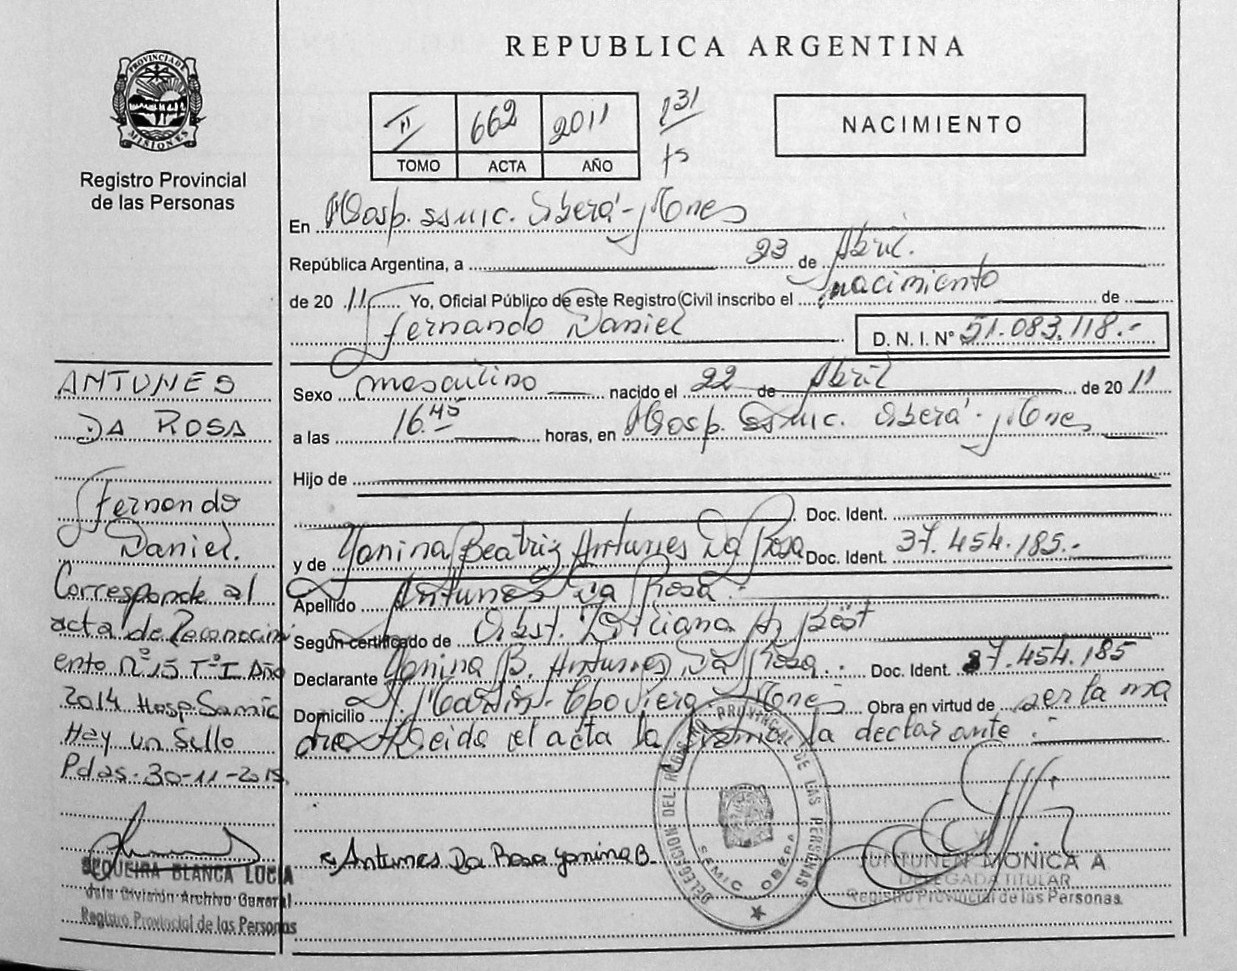 REPUBLICA ARGENTINA
PROVINCIA DE MISIONES
Registro Provincial
de las Personas
II 662 2011
TOMO ACTA AÑO
NACIMIENTO
En Hosp. SSMIC. Oberá-Mnes
República Argentina, a 23 de Abril.
de 20 11 Yo, Oficial Público de este Registro Civil inscribo el nacimiento de
Fernando Daniel D. N. I. N° 51.083.118.-
Sexo masculino nacido el 22 de Abril de 20 11
a las 16.45 horas, en Hosp. SSMIC. Oberá-Mnes
Hijo de
Doc. Ident.
y de Yanina Beatriz Antunes Da Rosa Doc. Ident. 37.454.185.-
Apellido Antunes Da Rosa.
Según certificado de Obst.
Declarante Yanina B. Antunes Da Rosa. Doc. Ident. 37.454.185
Domicilio Mnes Obra en virtud de ser la ma
dre Leida el acta la firma la declarante.
ANTUNES
DA ROSA
Fernando
Daniel.
Corresponde al
acta de Reconocimi
ento n° 15 T° I Año
2014 Hosp. Samic
Hay un Sello
Pdas. 30-11-2015
SEQUEIRA BLANCA LUCIA
Jefa División Archivo General
Registro Provincial de las Personas
Antunes Da Rosa Yanina B.
DELEGACION DEL REGISTRO PROVINCIAL DE LAS PERSONAS
SEMIC OBERA
UNTUNEN MONICA A
DELEGADA TITULAR
Registro Provincial de las Personas